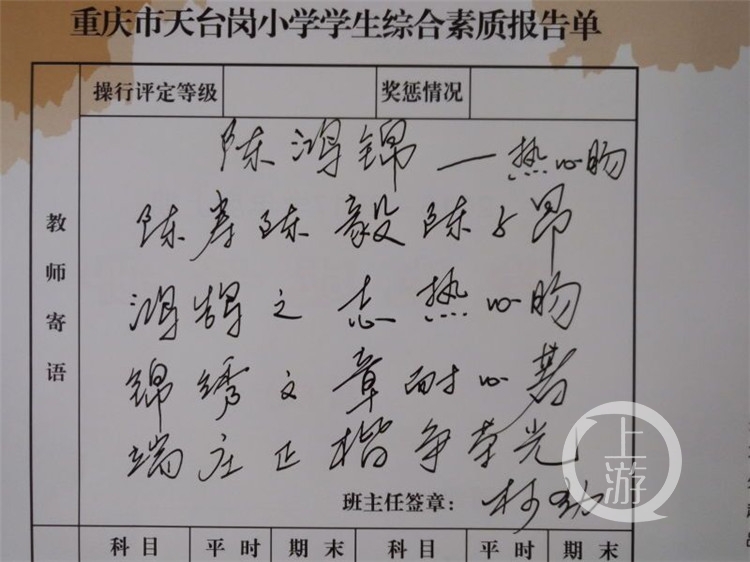 重庆市天台岗小学学生综合素质报告单
操行评定等级 奖惩情况
教师寄语
陈鸿锦——热心肠
陈寿陈毅陈子昂
鸿鹄之志热心肠
锦绣文章耐心著
端庄正楷争荣光
班主任签章：
科目 平时 期末 科目 平时 期末
上游